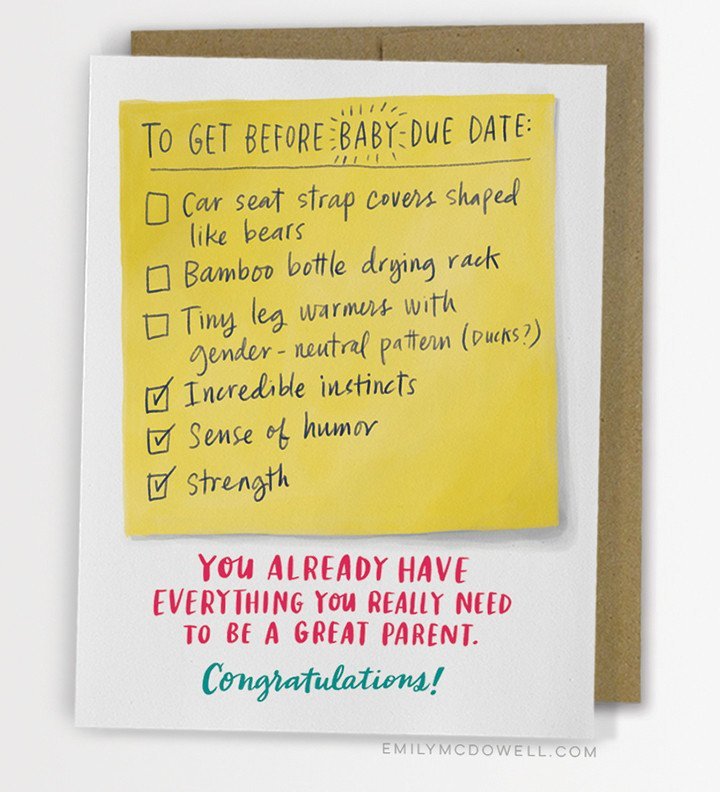 TO GET BEFORE BABY DUE DATE:
Car seat strap covers shaped
like bears
Bamboo bottle drying rack
Tiny leg warmers with
gender-neutral pattern (DUCKS?)
Incredible instincts
Sense of humor
Strength
YOU ALREADY HAVE
EVERYTHING YOU REALLY NEED
TO BE A GREAT PARENT.
Congratulations!
EMILYMCDOWELL.COM